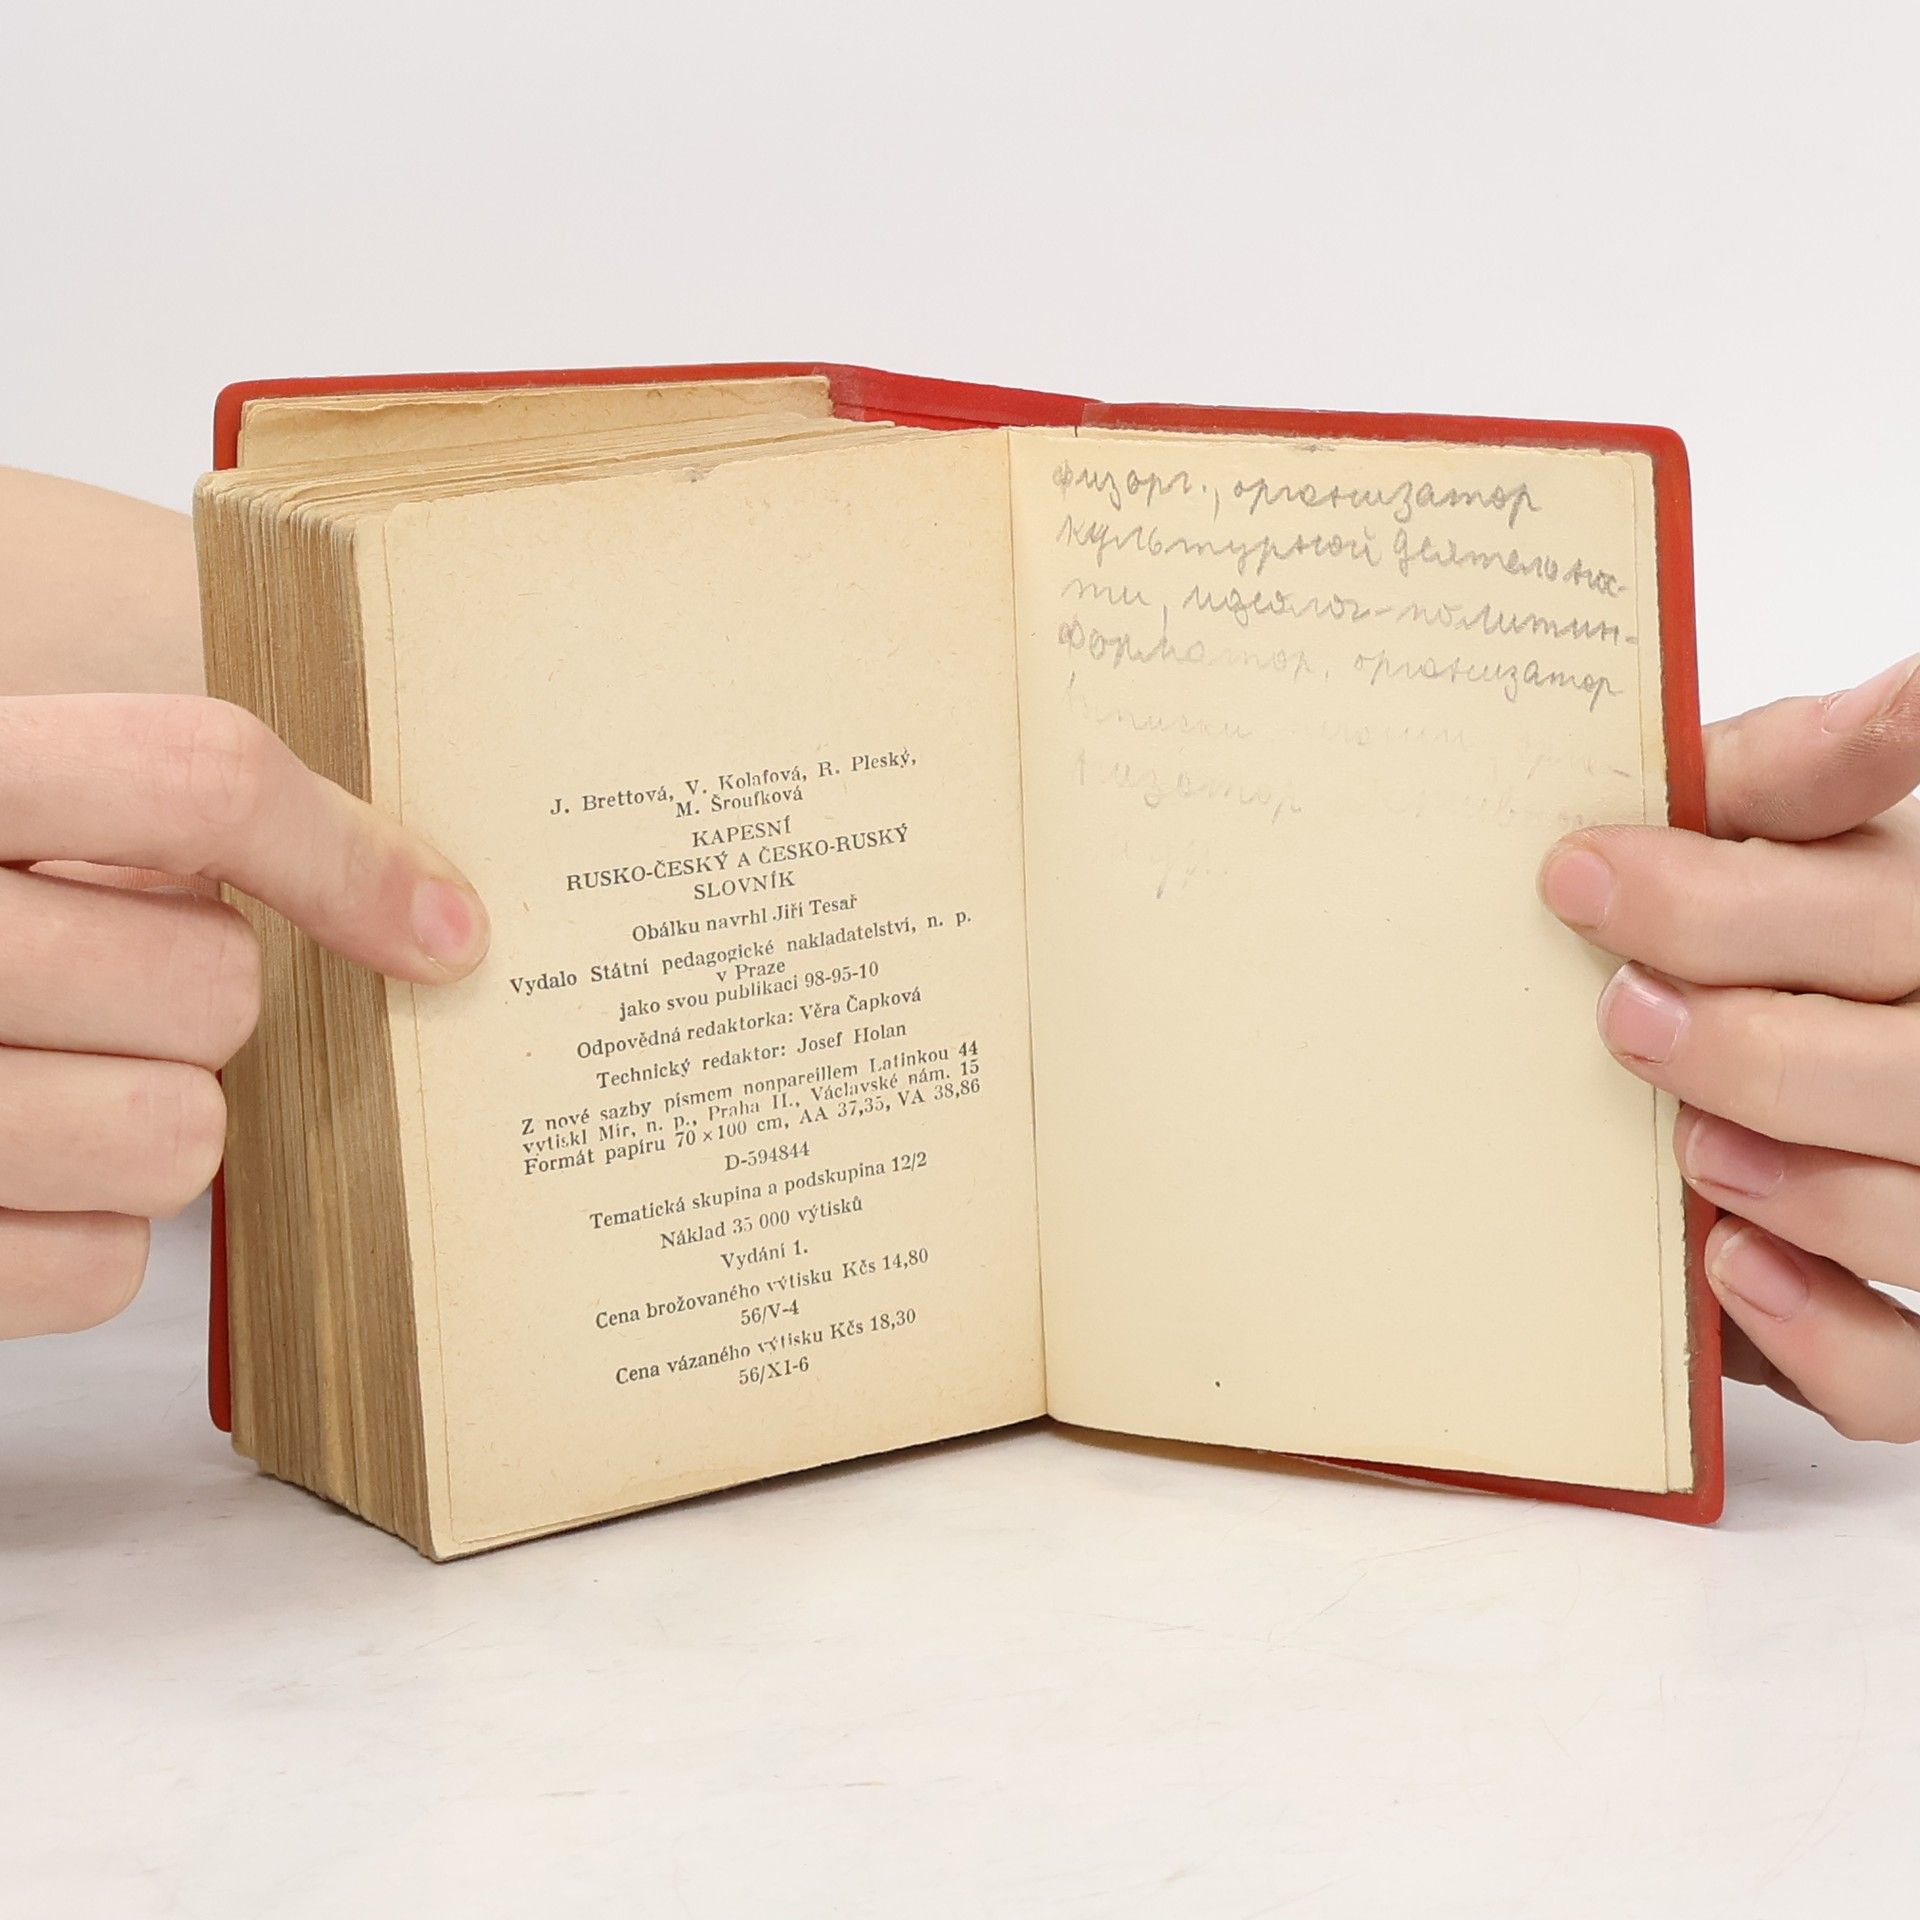 J. Brettová, V. Kolafová, R. Pleský,
M. Šroufková
KAPESNÍ
RUSKO-ČESKÝ A ČESKO-RUSKÝ
SLOVNÍK
Obálku navrhl Jiří Tesař
Vydalo Státní pedagogické nakladatelství, n. p.
v Praze
jako svou publikaci 98-95-10
Odpovědná redaktorka: Věra Čapková
Technický redaktor: Josef Holan
Z nové sazby písmem nonpareillem Latinkou 44
vytiskl Mír, n. p., Praha II., Václavské nám. 15
Formát papíru 70 × 100 cm, AA 37,35, VA 38,86
D-594844
Tematická skupina a podskupina 12/2
Náklad 35 000 výtisků
Vydání 1.
Cena brožovaného výtisku Kčs 14,80
56/V-4
Cena vázaného výtisku Kčs 18,30
56/XI-6
физорг., организатор
культурной деятельнос-
ти, идеолог-политин-
форматор, организатор